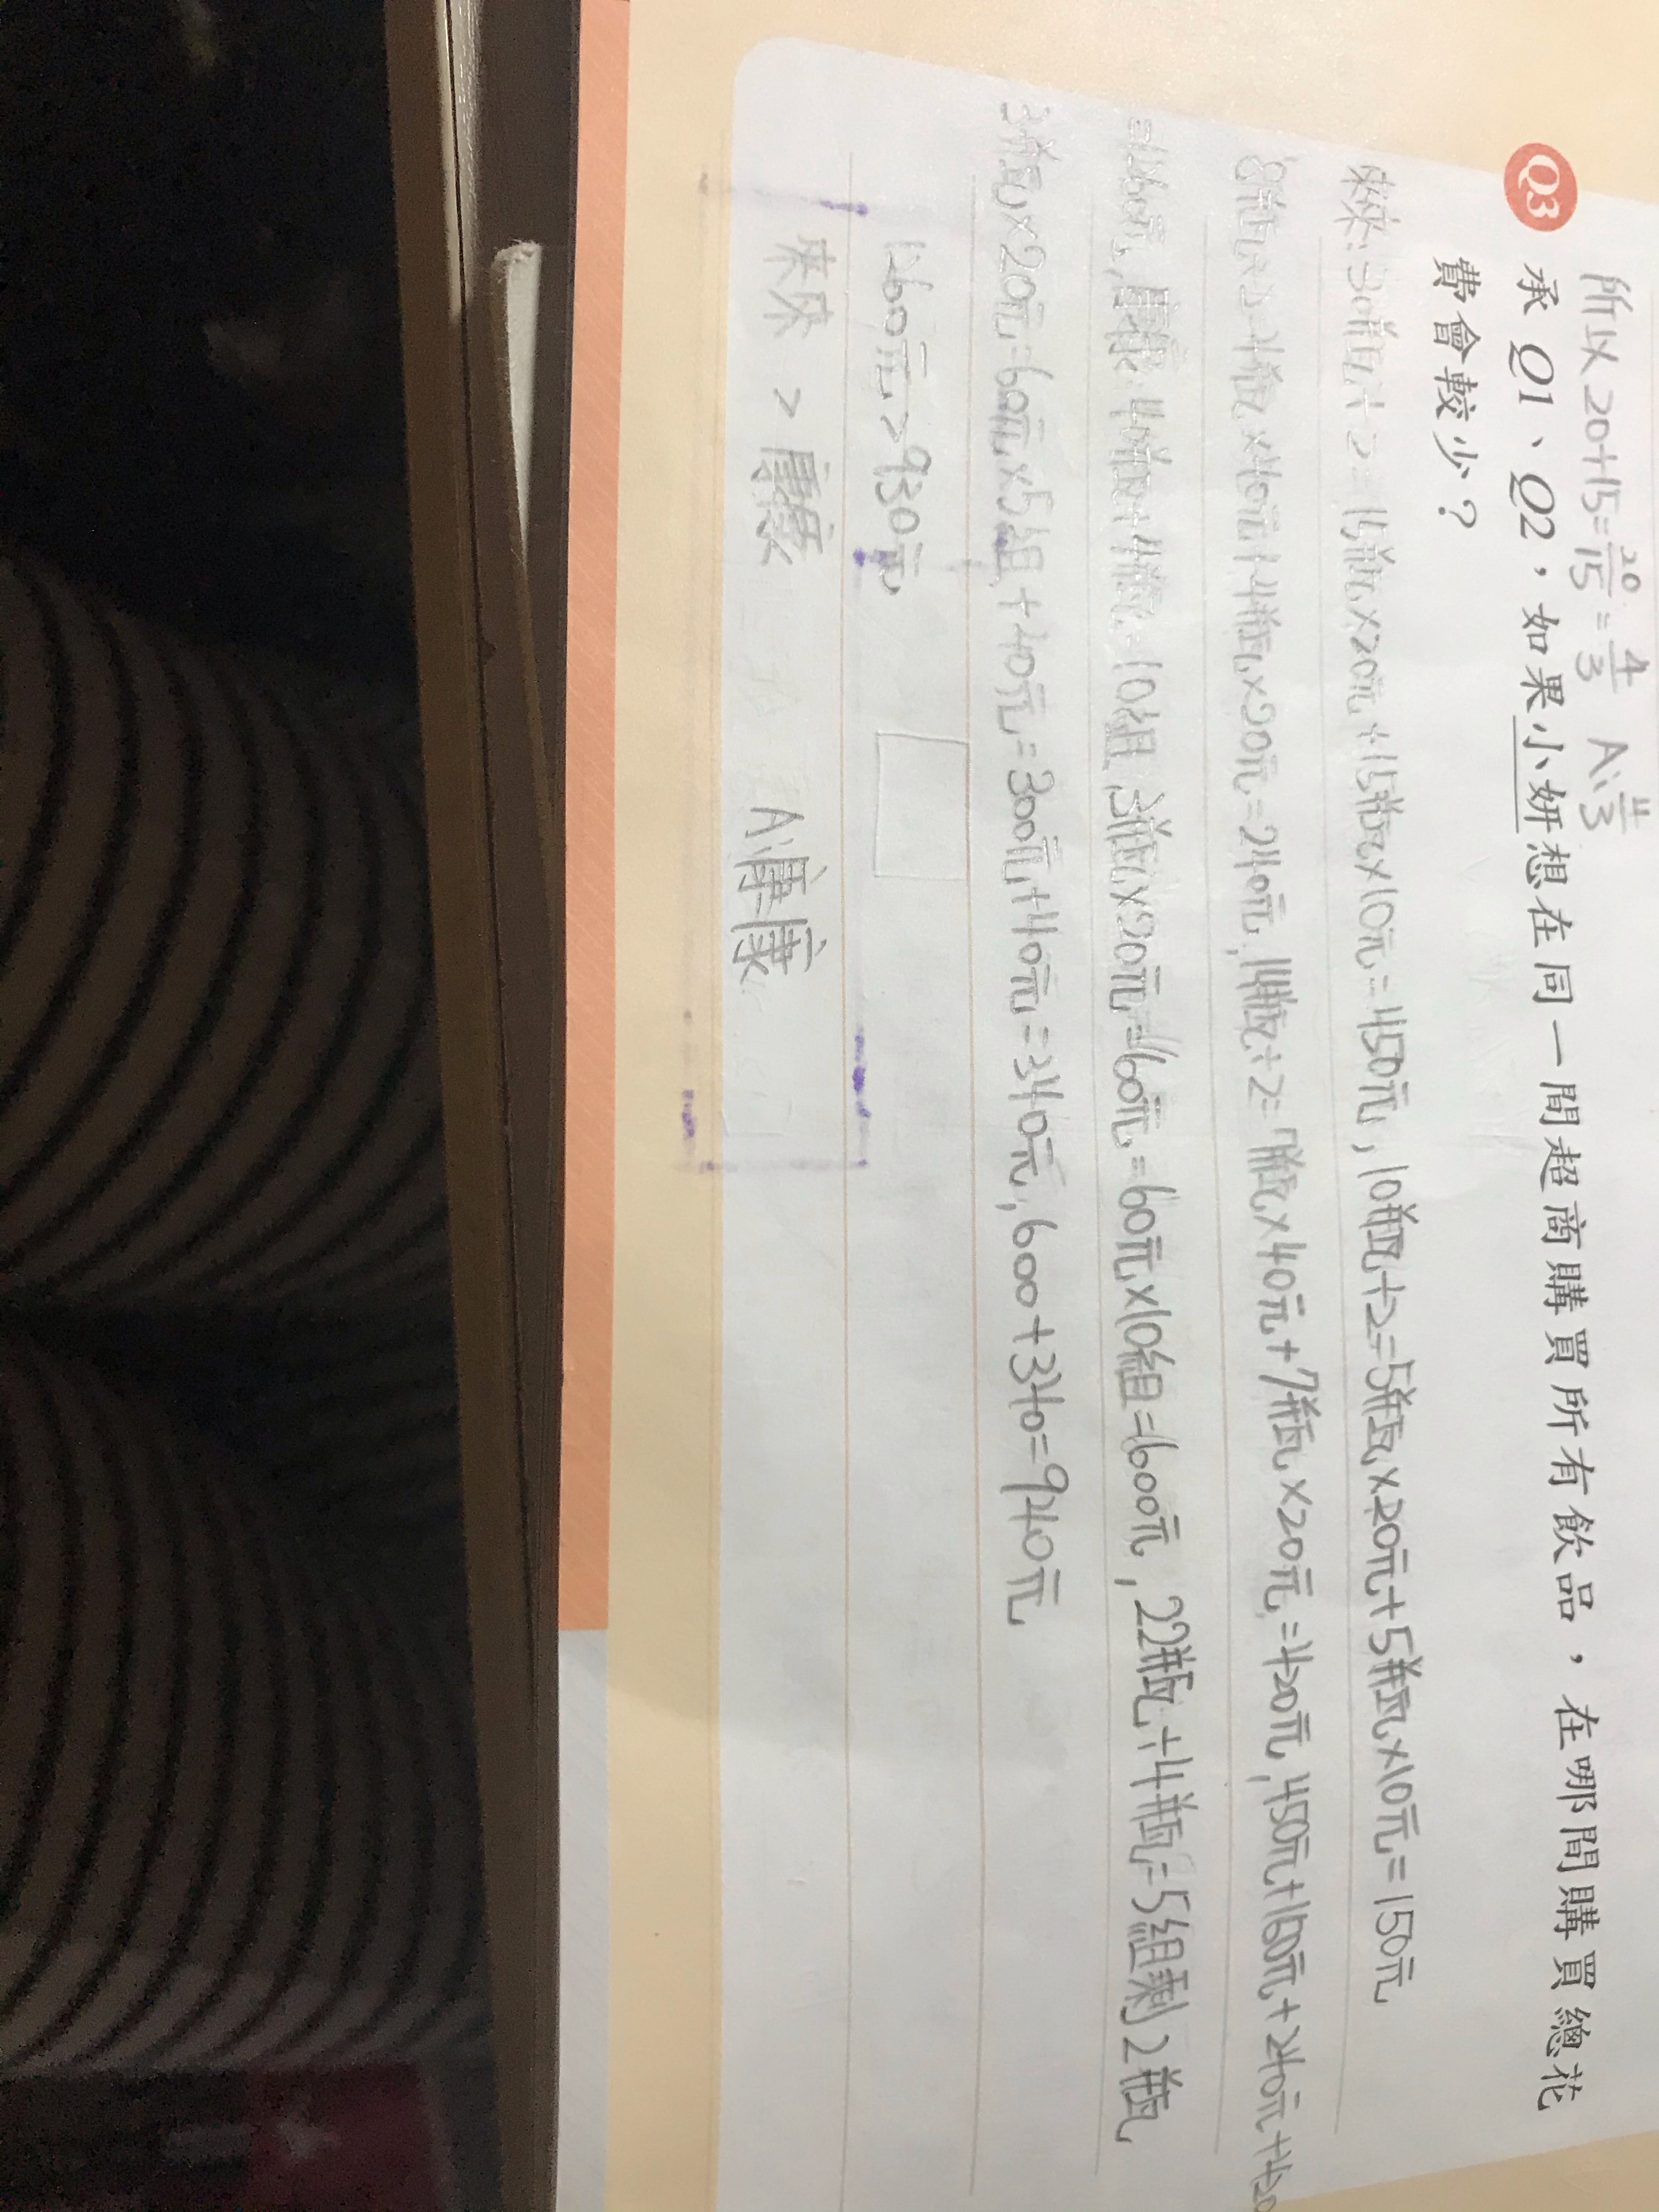 所以20÷15=20/15=4/3 A:4/3
Q3 承Q1、Q2,如果小妍想在同一間超商購買所有飲品,在哪間購買總花
費會較少?
來來:30瓶÷2=15瓶×20元+15瓶×10元=450元,10瓶÷2=5瓶×20元+5瓶×10元=150元
8瓶÷2=4瓶×40元+4瓶×20元=240元,14瓶÷2=7瓶×40元+7瓶×20元=420元,450元+150元+240元+420
=1260元,康康:40瓶÷4瓶=10組,3瓶×20元=60元=60元×10組=600元,22瓶÷4瓶=5組剩2瓶
3瓶×20元=60元×5組+40元=300元+40元=340元,600+340=940元
1260元>930元
來來>康康 A:康康